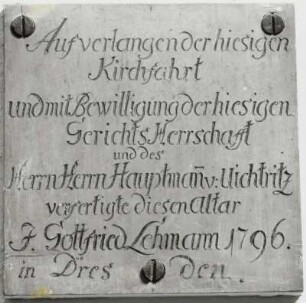 Auf verlangen der hiesigen
Kirchfahrt
und mit Bewilligung der hiesigen
Gerichts Herrschaft
und des
Herrn Herrn Hauptmañ v: Uichtritz
verfertigte diesen Altar
F. Gottfried Lehmann 1796.
in Dresden.